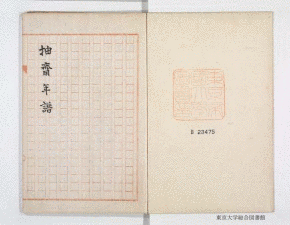 抽斎年譜
B 23475
東京大学総合図書館